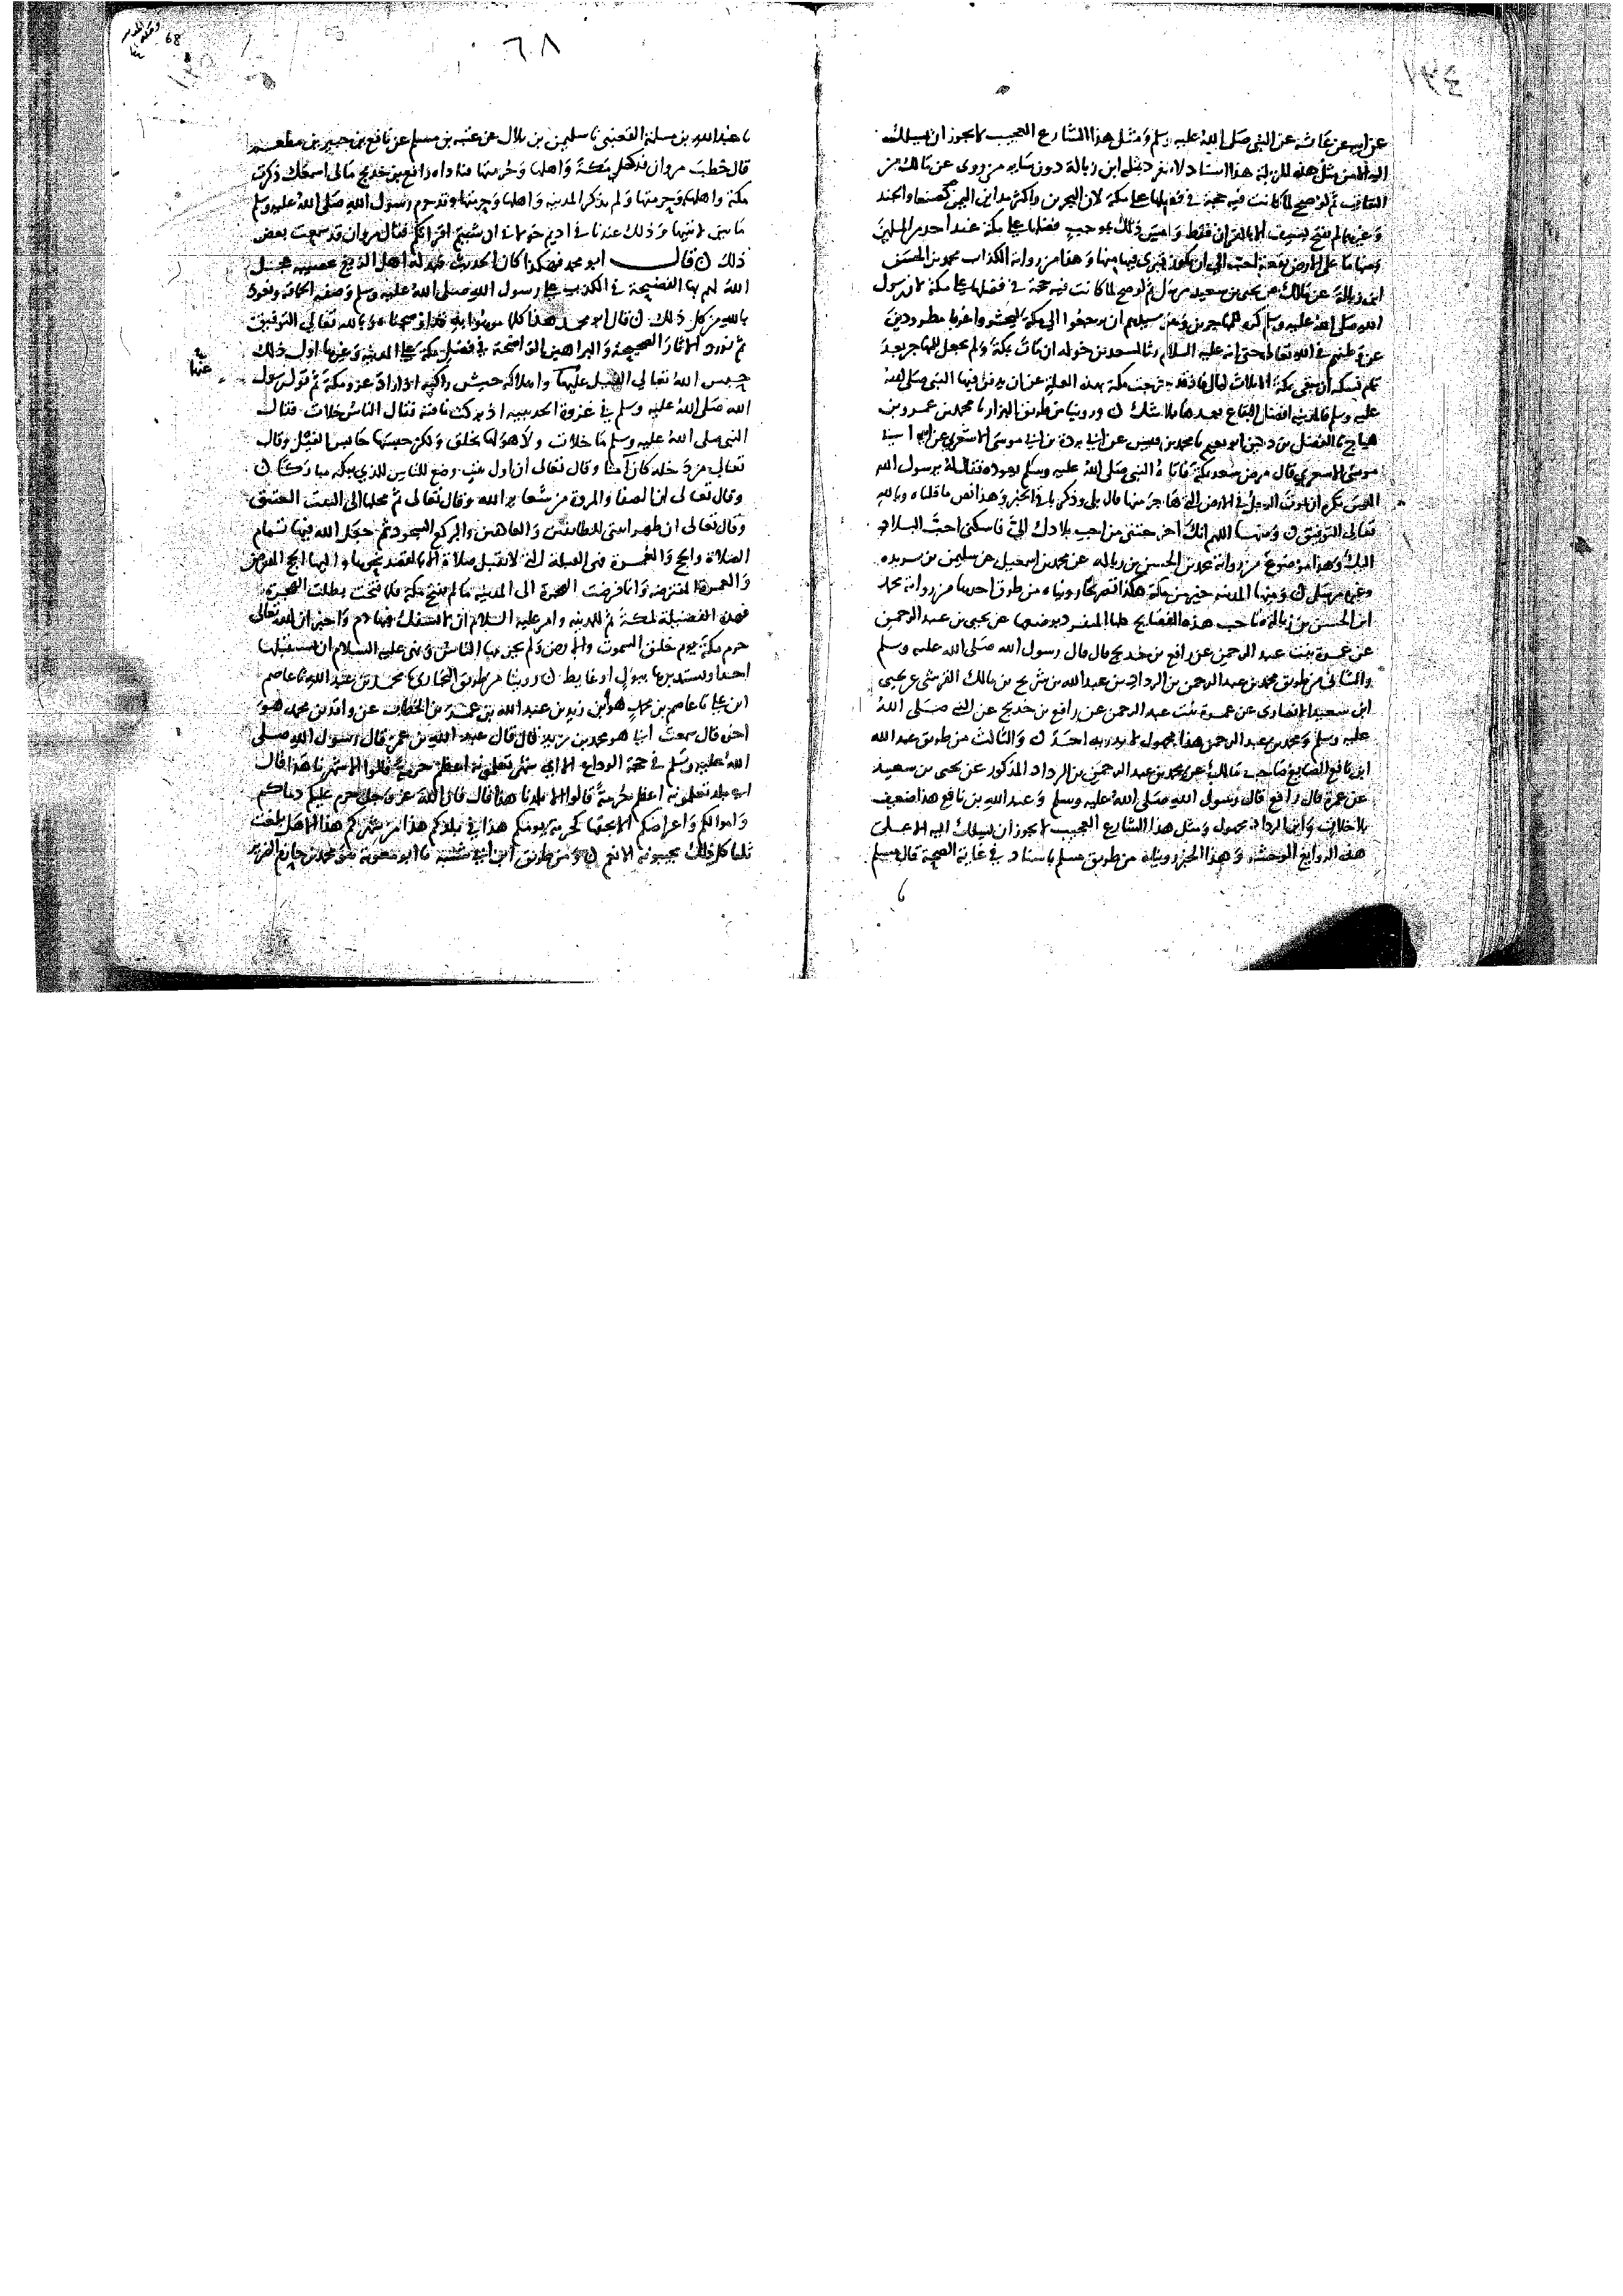 ١٣٤
عن ابيه عن عائشة عن النبي صلى الله عليه وسلم ومثل هذا الشارع العجيب لا يجوز ان يسلك
اليه الا من مثل هذه المزبلة هذا اسناد لا ينفرد بمثله ابن زبالة دون سائر من روى عن مالك من
الثقات ثم لو صح لما كانت فيه حجة في فضلها على مكة لان البحرين واكثر مدائن اليمن كصنعا والجند
وغيرها لم تفتح بسيف الا بالقران فقط وليس ذلك بموجب فضلها على مكة عند احد من المسلمين
ومنها ما على الارض بقعة احب الي ان يكون قبري فيها منها وهذا من رواية الكذاب محمد بن الحسن
ابن زبالة عن مالك عن يحيى بن سعيد مرسل ثم لو صح لما كانت فيه حجة في فضلها على مكة لان رسول
الله صلى الله عليه وسلم كره للمهاجرين وهو سيدهم ان يرجعوا الى مكة ليحشروا غربا مطرودين
عن وطنهم في الله تعالى حتى انه عليه السلام رثا لسعد بن خولة ان مات بمكة ولم يجعل للمهاجر بعد
تمام نسكه ان يبقى بمكة الا ثلاث ليال فاذ قد خرجت مكة بهذه العلة عن ان يدفن فيها النبي صلى الله
عليه وسلم فالمدينة افضل البقاع بعدها بلا شك ن وروينا من طريق البزار نا محمد بن عمرو بن
هياج نا الفضل بن دكين ابو نعيم نا محمد بن قيس عن ابي بردة بن ابي موسى الاشعري عن ابيه ابي
موسى الاشعري قال مرض سعد بمكة فاتاه النبي صلى الله عليه وسلم يعوده فقال له يرسول الله
اليس تكره ان يموت الرجل في الارض التي هاجر منها قال بلى وذكر باقي الخبر وهذا نص ما قلناه وبالله
تعالى التوفيق ن ومنها اللهم انك اخرجتني من احب بلادك الي فاسكني احب البلاد
اليك وهذا موضوع من رواية محمد بن الحسن بن زبالة عن محمد بن اسمعيل عن سليمن بن بريدة
وغيره مرسل ن ومنها المدينة خير من مكة هكذا نصه كما رويناه من طرق احدها من رواية محمد
ابن الحسن بن زبالة صاحب هذه الفضايح كلها المنفرد بوضعها عن يحيى بن عبد الرحمن
عن عمرة بنت عبد الرحمن عن رافع بن خديج قال قال رسول الله صلى الله عليه وسلم
والثاني من طريق محمد بن عبد الرحمن بن الرداد بن عبد الله بن شريح بن مالك القرشي عن يحيى
ابن سعيد الانصاري عن عمرة بنت عبد الرحمن عن رافع بن خديج عن النبي صلى الله
عليه وسلم ومحمد بن عبد الرحمن هذا مجهول لا يدريه احد ن والثالث من طريق عبد الله
ابن نافع الصايغ صاحب مالك عن محمد بن عبد الرحمن بن الرداد المذكور عن يحيى بن سعيد
عن عمرة قال رافع قال رسول الله صلى الله عليه وسلم وعبد الله بن نافع هذا ضعيف
بلا خلاف وابن الرداد مجهول ومثل هذا الشارع العجيب لا يجوز ان يسلك اليه الا على
هذه الروايغ الوحشة وهذا الخبر رويناه من طريق مسلم باسناد في غاية الصحة قال مسلم
٦٨
68
نا عبد الله بن مسلمة القعنبي نا سليمن بن بلال عن عتبة بن مسلم عن نافع بن جبير بن مطعم
قال خطب مروان فذكر مكة واهلها وحرمتها فناداه رافع بن خديج مالي اسمعك ذكرت
مكة واهلها وحرمتها ولم تذكر المدينة واهلها وحرمتها وقد حرم رسول الله صلى الله عليه وسلم
ما بين لابتيها وذلك عندنا في اديم خولاني ان شئتم اقراتكم فقال مروان قد سمعت بعض
ذلك ن قال ابو محمد فهكذا كان الحديث فبدله اهل الزيغ عصبية عجل
الله لهم بها الفضيحة في الكذب على رسول الله صلى الله عليه وسلم وصفة الحاقة ونعوذ
بالله من كل ذلك ن قال ابو محمد هذا كلما موهوا به قد اوضحناه وبالله تعالى التوفيق
ثم نورد الاثار الصحيحة والبراهين الواضحة في فضل مكة على المدينة وغيرها اول ذلك
حبس الله تعالى الفيل عنها واهلاكه جيش راكبه اذ اراد غزو مكة ثم قول رسول
الله صلى الله عليه وسلم في غزوة الحديبية اذ بركت ناقته فقال الناس خلات فقال
النبي صلى الله عليه وسلم ما خلات ولا هو لها بخلق ولكن حبسها حابس الفيل وقال
تعالى من دخله كان آمنا وقال تعالى ان اول بيت وضع للناس للذي ببكة مباركا ن
وقال تعالى ان الصفا والمروة من شعاير الله وقال تعالى ثم محلها الى البيت العتيق
وقال تعالى ان طهرا بيتي للطائفين والعاكفين والركع السجود ثم جعل الله فيها تمام
الصلاة والحج والعمرة فهي القبلة التي لا تقبل صلاة الا بالقصد نحوها واليها الحج المفترض
والعمرة المفترضة وانما فرضت الهجرة الى المدينة ما لم تفتح مكة فلما فتحت بطلت الهجرة
فهذه الفضيلة لمكة ثم للمدينة وامر عليه السلام ان لا يسفك فيها دم واخبر ان الله تعالى
حرم مكة يوم خلق السموت والارض ولم يحرمها الناس ونهى عليه السلام ان يستقبلها
احد او يستدبرها ببول او غايط ن روينا من طريق البخاري نا محمد بن عبد الله نا عاصم
ابن علي نا عاصم بن محمد هو ابن زيد بن عبد الله بن عمر بن الخطاب عن واقد بن محمد هو
اخوه قال سمعت ابي هو محمد بن زيد قال قال عبد الله بن عمر قال رسول الله صلى
الله عليه وسلم في حجة الوداع الا اي شهر تعلمونه اعظم حرمة قالوا الا شهرنا هذا قال
اي بلد تعلمونه اعظم حرمة قالوا الا بلدنا هذا قال فان الله عز وجل حرم عليكم دماكم
واموالكم واعراضكم الا بحقها كحرمة يومكم هذا في بلدكم هذا من شهركم هذا الا هل بلغت
ثلثا كل ذلك يجيبونه الا نعم ن ومن طريق ابن ابي شيبة نا ابو معوية هو محمد بن خازم الضرير